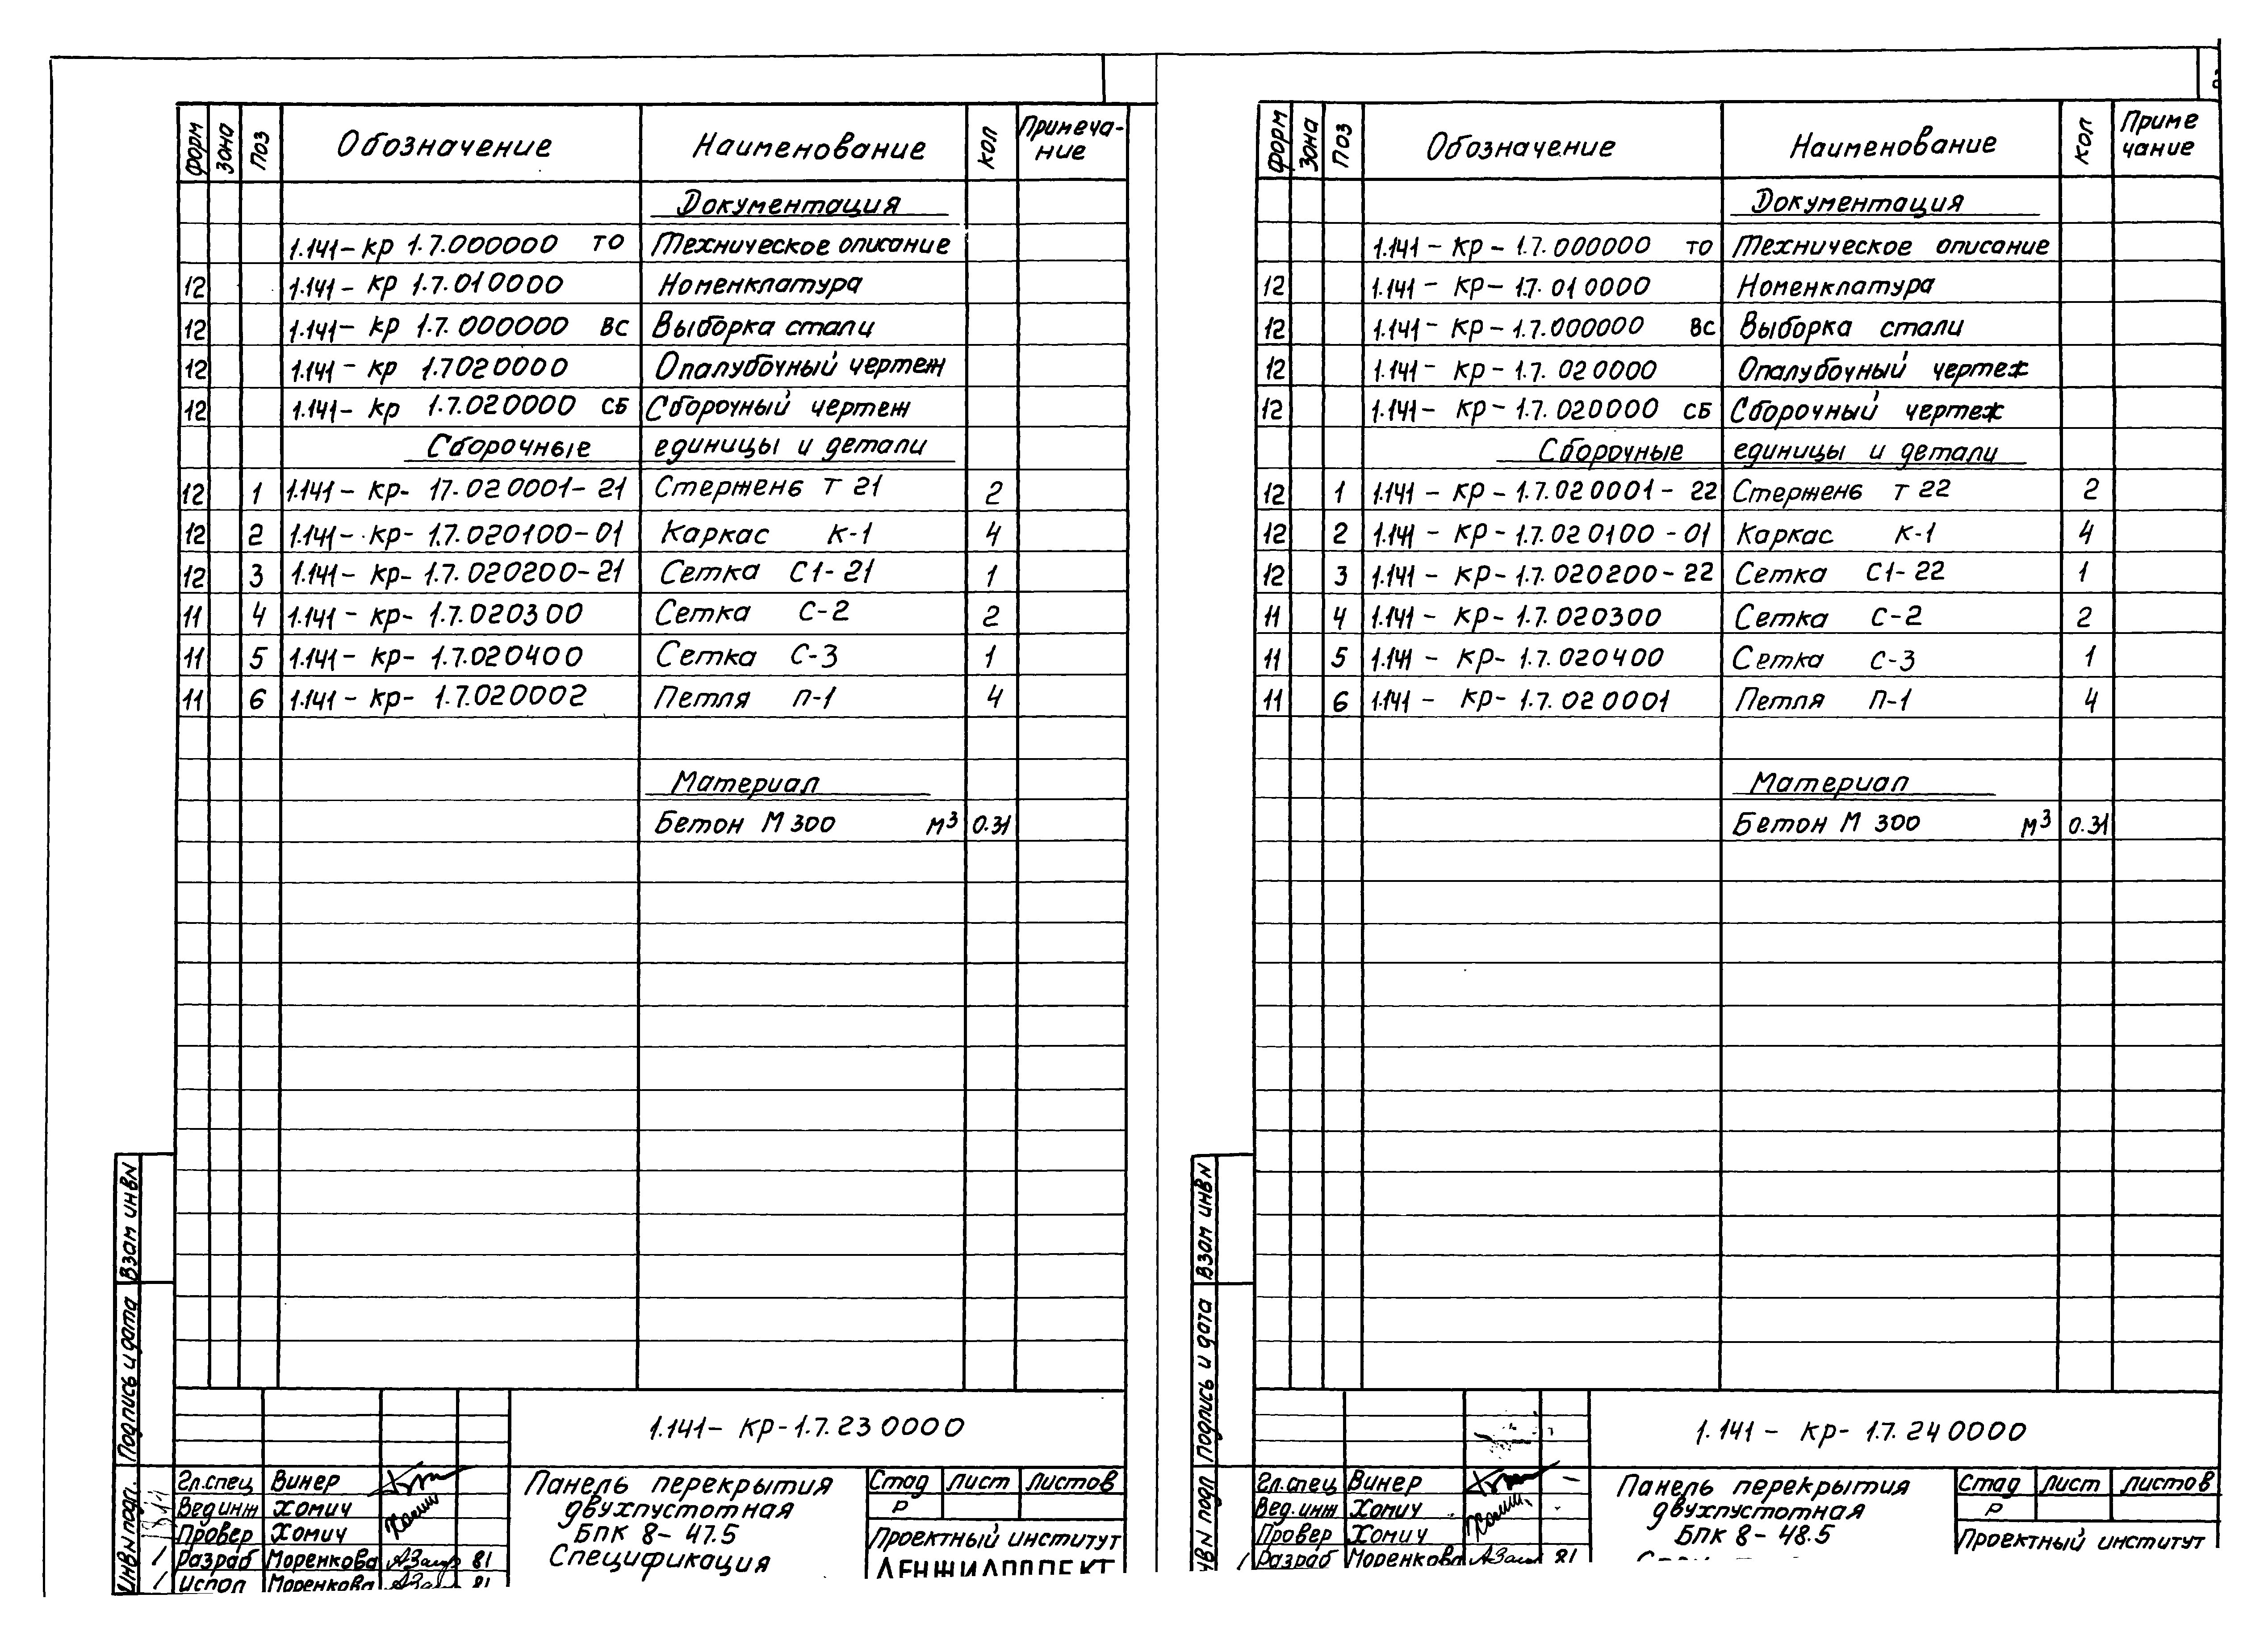 форм зона поз Обозначение Наименование кол Примеча-
ние
Документация
1.141-кр 1.7.000000 ТО Техническое описание
12 1.141- кр 1.7.010000 Номенклатура
12 1.141- кр 1.7.000000 ВС Выборка стали
12 1.141- кр 1.7020000 Опалубочный чертеж
12 1.141- кр 1.7.020000 СБ Сборочный чертеж
Сборочные единицы и детали
12 1 1.141- кр- 17.020001-21 Стержень Т 21 2
12 2 1.141- кр- 1.7.020100-01 Каркас К-1 4
12 3 1.141- кр- 1.7.020200-21 Сетка С1-21 1
11 4 1.141- кр- 1.7.020300 Сетка С-2 2
11 5 1.141- кр- 1.7.020400 Сетка С-3 1
11 6 1.141- кр- 1.7.020002 Петля П-1 4
Материал
Бетон М 300 м³ 0.31
Взам инв N
Подпись и дата
Инв N подл.
1.141- кр-1.7.230000
Гл.спец Винер
Вед инж Хомич
Провер Хомич
Разраб Моренкова 81
Испол Моренкова 81
Панель перекрытия
двухпустотная
БПК 8-47.5
Спецификация
Стад Лист Листов
Р
Проектный институт
ЛЕНЖИЛПРОЕКТ
форм зона поз Обозначение Наименование кол Приме
чание
Документация
1.141- кр- 1.7.000000 ТО Техническое описание
12 1.141- кр- 1.7.010000 Номенклатура
12 1.141- кр- 1.7.000000 ВС Выборка стали
12 1.141- кр- 1.7.020000 Опалубочный чертеж
12 1.141- кр- 1.7.020000 СБ Сборочный чертеж
Сборочные единицы и детали
12 1 1.141- кр- 1.7.020001-22 Стержень Т 22 2
12 2 1.141- кр- 1.7.020100-01 Каркас К-1 4
12 3 1.141- кр- 1.7.020200-22 Сетка С1-22 1
11 4 1.141- кр- 1.7.020300 Сетка С-2 2
11 5 1.141- кр- 1.7.020400 Сетка С-3 1
11 6 1.141- кр- 1.7.020001 Петля П-1 4
Материал
Бетон М 300 м³ 0.31
Взам инв N
Подпись и дата
Инв N подл
1.141- кр- 1.7.240000
Гл.спец Винер
Вед.инж Хомич
Провер Хомич
Разраб Моренкова 81
Панель перекрытия
двухпустотная
БПК 8-48.5
Стад Лист Листов
Р
Проектный институт